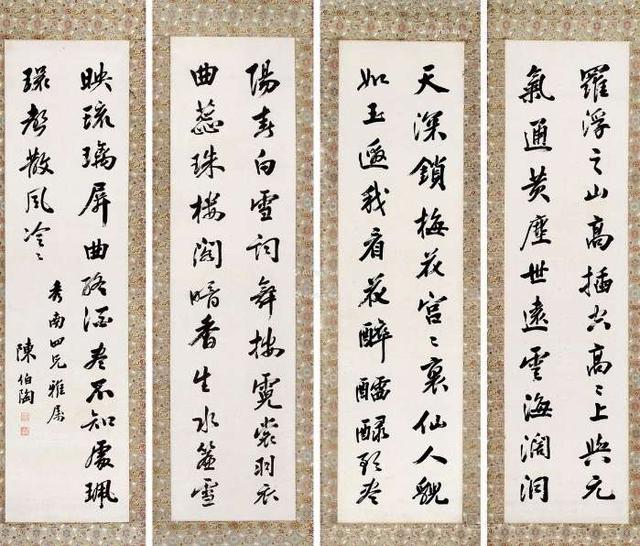 羅浮之山高插空高〻上與元
氣通黃塵世遠雲海濶洞
天深鎖梅花宮〻裏仙人貌
如玉邀我看花醉醽醁歌尽
陽春白雪詞舞按霓裳羽衣
曲蕊珠樓閣暗香生水簾雪
映琉璃屏曲終酒尽不知處珮
環聲散風冷〻
秀南四兄雅属
陳伯陶